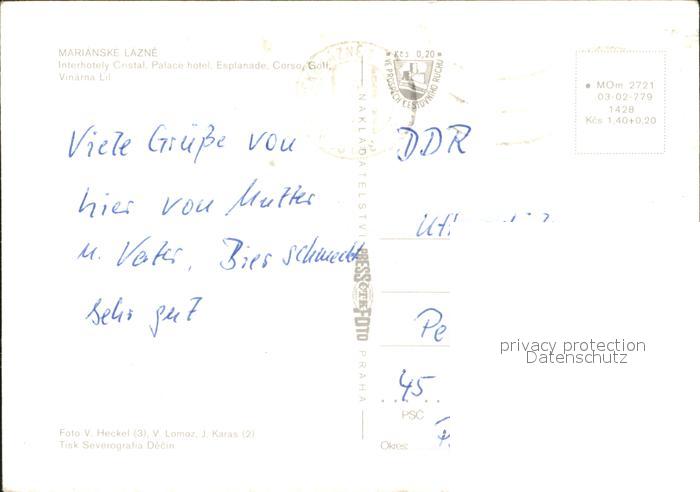 MARIÁNSKÉ LÁZNĚ
Interhotely Cristal, Palace hotel, Esplanade, Corso, Golf,
Vinárna Lil
Viele Grüße von
hier von Mutter
u. Vater, Bier schmeckt
sehr gut
Foto V. Heckel (3), V. Lomoz, J. Karas (2)
Tisk Severografia Děčín
NAKLADATELSTVÍ
PRESSFOTO
PRAHA
Kčs 0,20
VE PROSPĚCH CESTOVNÍHO RUCHU
MOm 2721
03-02-779
1428
Kčs 1,40+0,20
DDR
Pe
45
PSČ
Okres:
privacy protection
Datenschutz